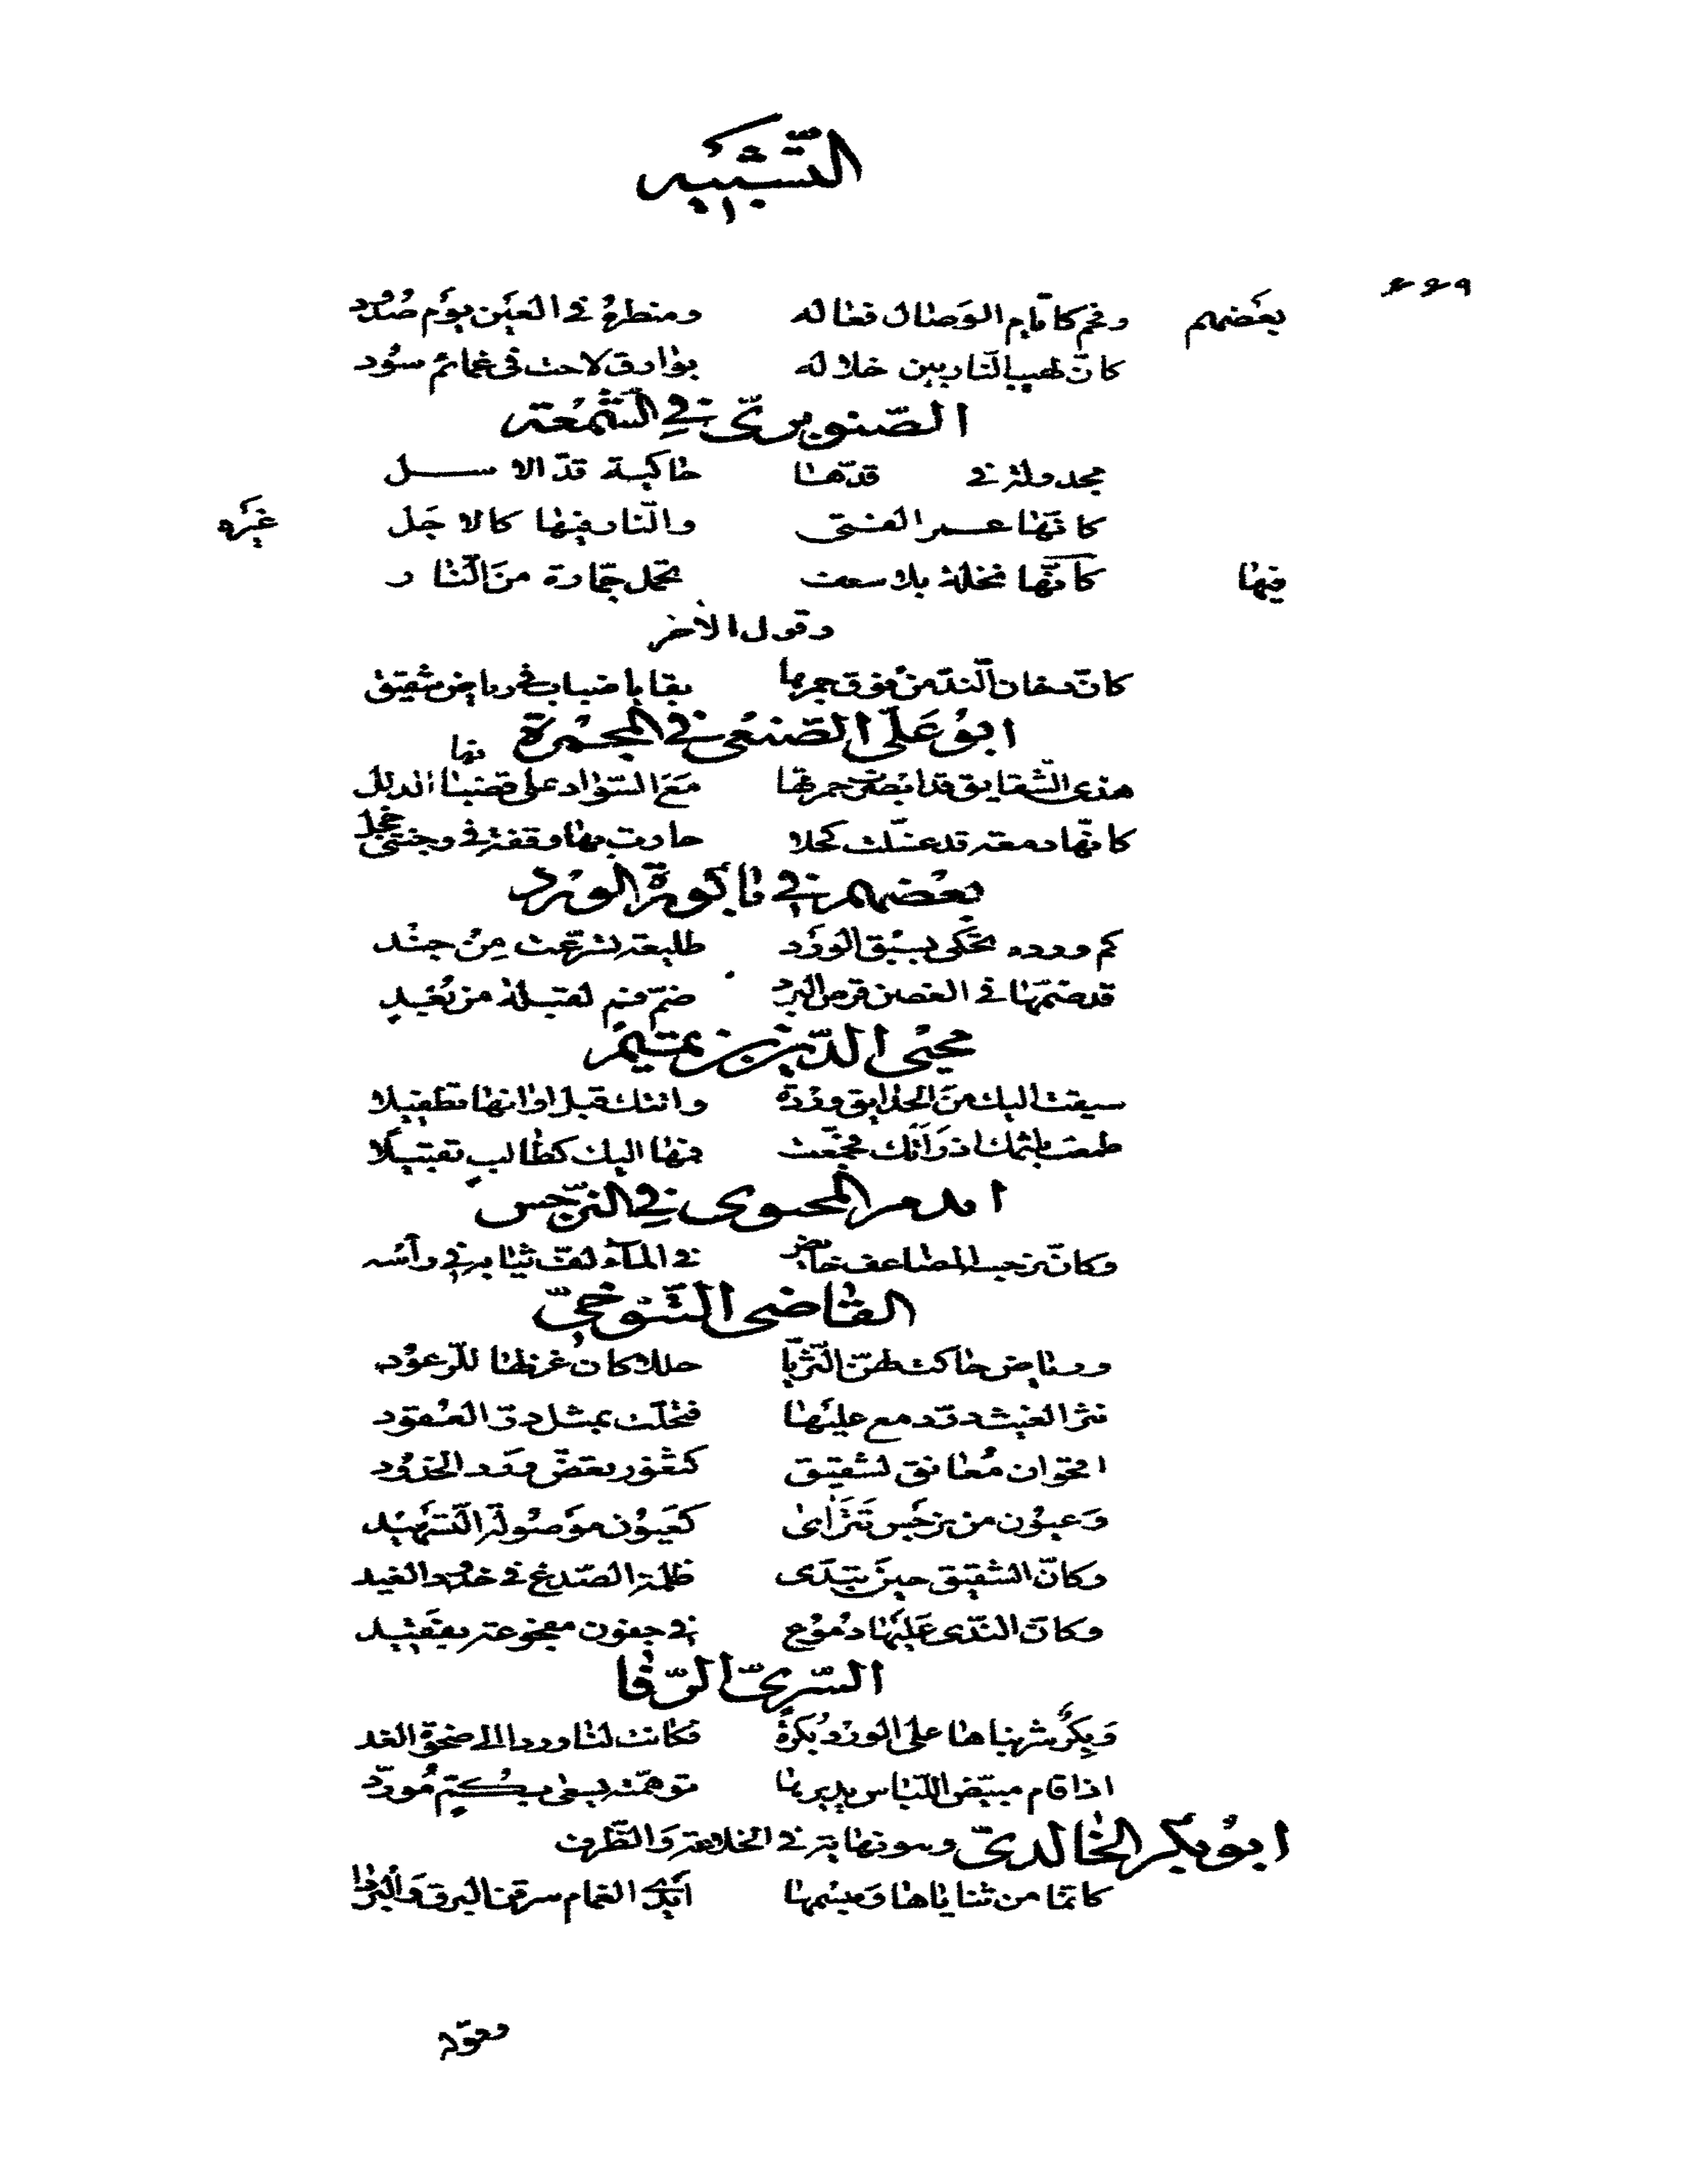 التشبيه
بعضهم وفحم كايام الوصال فعاله ومنظره في العين يوم صدود
كان لهيب النار بين خلاله بوارق لاحت في غمائم سود
الصنوبري في الشمعة
مجدولة في قدها حاكية قد الاسل
كانها عمر الفتى والنار فيها كالاجل غيره
فيها كانها نخلة بلا سعف تحمل جمارة من النار
وقول الاخر
كان دخان الند من فوق جمرها بقايا ضباب في رياض شقيق
ابو علي الصنعي في المجمرة
هذي الشقايق قد ابصرت حمرتها مع السواد على قضبانها الذلل
كانها دمعة قد غسلت كحلا جادت بها وقفة في وجنتي خجل
بعضهم في باكورة الورد
كم وردة تحكي بسبق الورد طليعة تسرعت من جند
قد ضمها في الغصن قرص البرد ضم فم لقبلة من بعيد
محيي الدين بن تميم
سبقت اليك من الحدايق وردة واتتك قبل اوانها تطفيلا
طمعت بلثمك اذ راتك فجمعت فمها اليك كطالب تقبيلا
ايدمر المحيوي في النرجس
وكان نرجسه المضاعف خائض في الماء لف ثيابه في راسه
القاضي التنوخي
ورياض حاكت لهن الثريا حللا كان غزلها للرعود
نثر الغيث در دمع عليها فتحلت بمثل در العقود
اقحوان معانق لشقيق كثغور تعض ورد الخدود
وعيون من نرجس تتراى كعيون موصولة التسهيد
وكان الشقيق حين تبدى ظلمة الصدغ في خدود الغيد
وكان الندى عليها دموع في جفون مفجوعة بفقيد
السري الرفا
وبكر شربناها على الورد بكرة فكانت لنا وردا الى ضحوة الغد
اذا قام مبيض اللباس يديرها توهمته يسعى بكم مورد
ابو بكر الخالدي وهو نهاية في الخلاعة والظرف
كانما من ثناياها ومبسمها ايدي الغمام سرقن البرق والبردا